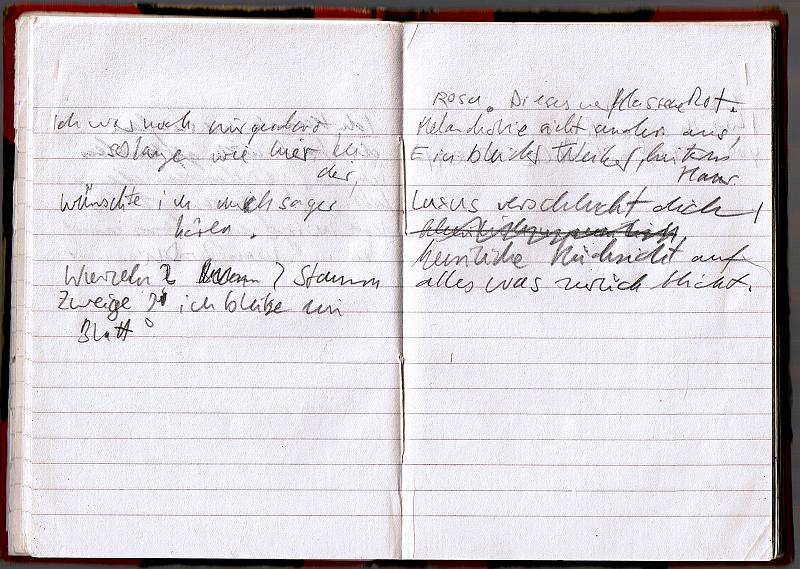 Ich war noch nirgendwo
solange wie hier
der,
wünschte ich mich sagen
hören.
Wurzeln? ? Stamm
Zweige? ich bleibe ein
Blatt
ROSA. Dieses verblassene Rot.
Melancholie sieht anders aus,
Ein bleicher
Haus
Luxus verschleicht dich
heimliche Rücksicht auf
alles was zurück blickt.